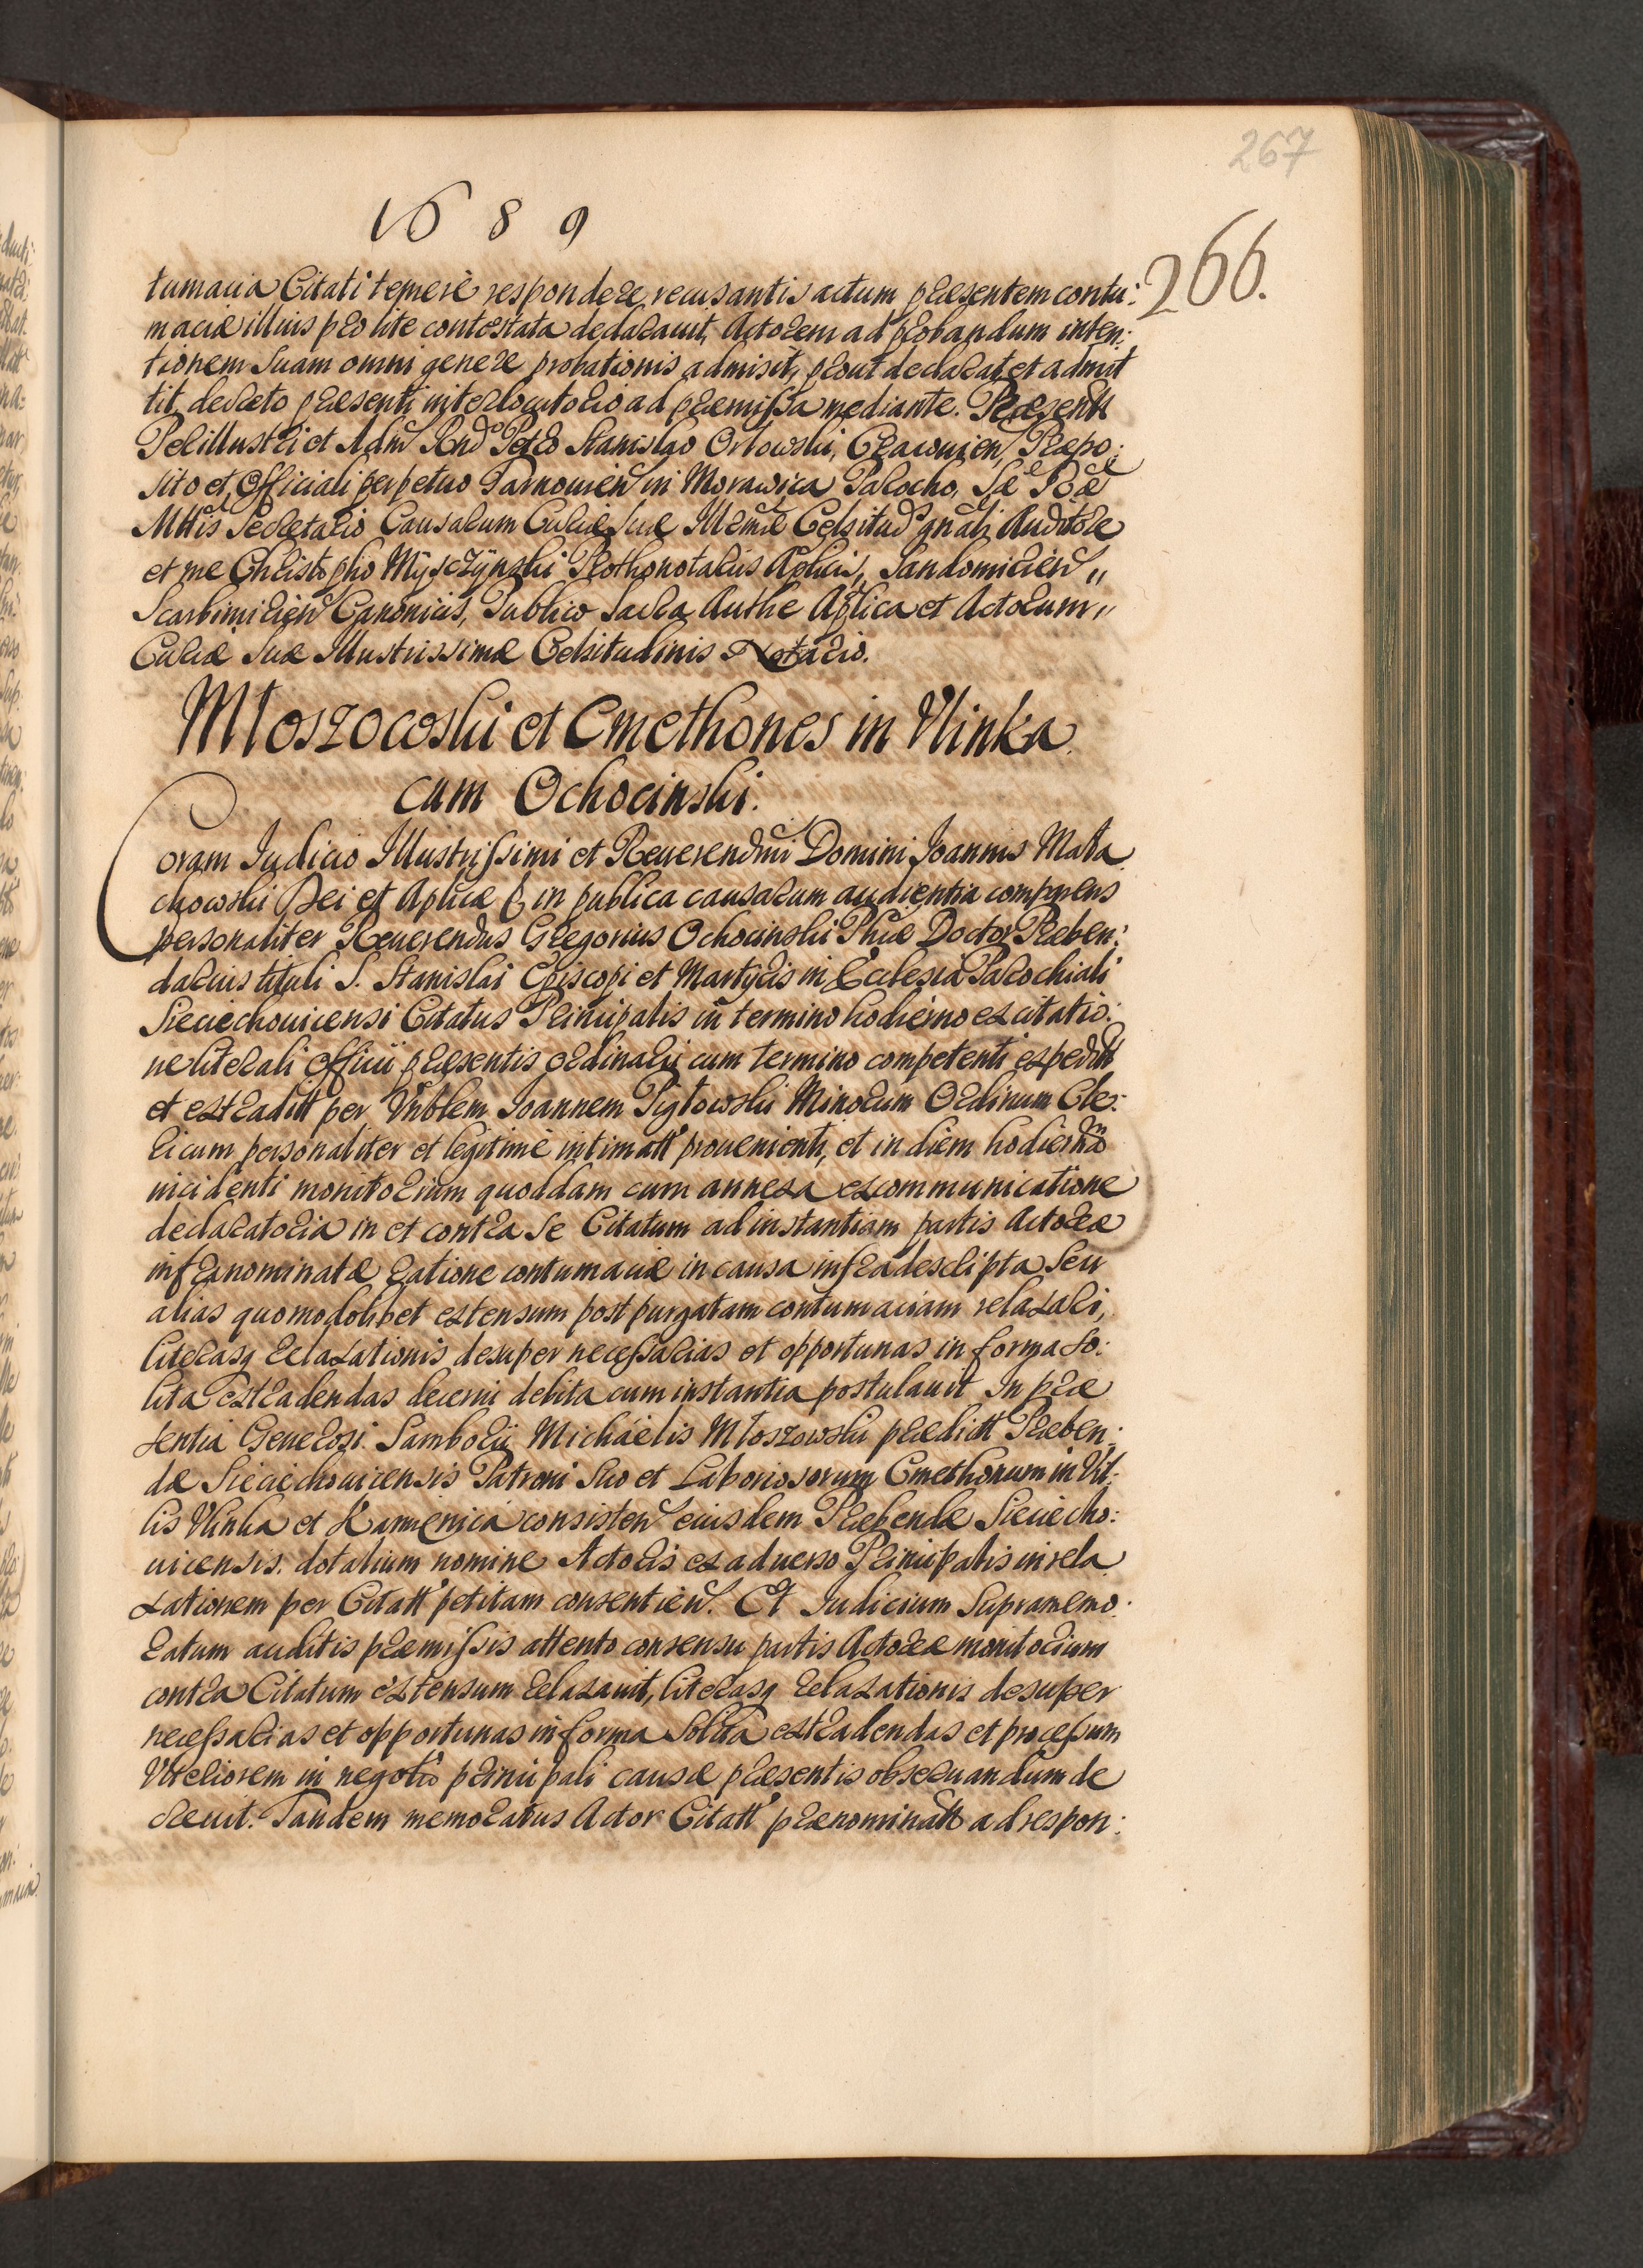 267
1689
266.
tumacia Citati temere respondere recusantis actum præsentem contu:
maciæ illius pro lite contestata declarauit, Actorem ad probandum inten:
tionem suam omni genere probationis admisit, prout declarat et admit
tit decreto præsenti interlocutorio ad præmissa mediante. Præsentt
Perillustri et Adm Rndo Petro Stanislao Orłowski, Cracouien, Præpo:
sito et Officiali perpetuo Tarnouien in Morawica Parocho, Sæ Ræ
Mttis Secretario Causarum Curiæ Suæ Illmæ Celsitud gnali Auditore
et me Christopho Myszczynski Prothonotarius Aplicus, Sandomirien"
Scarbimirien Canonicus, Publico Sacra Authe Aplica et Actorum"
Curiæ Suæ Illustrissimæ Celsitudinis Notario.
Młoszocoski et Cmethones in Vlinka
cum Ochocinski.
Coram Iudicio Illustrissimi et Reuerendmi Domini Joannis Mała
chowski Dei et Aplicæ & in publica causarum audientia comparens
personaliter Reuerendus Gregorius Ochocinski Phiæ Doctor Præben:
darius tituli S. Stanislai Episcopi et Martyris in Ecclesia Parochiali
Sieciechouicensi Citatus Principalis in termino hodierno ex citatio:
ne literali officii præsentis ordinarii cum termino competenti expeditt
et extraditt per Vnblem Joannem Pijtowski Minorum Ordinum Cle:
ricum personaliter et legitimè intimatt prouenienti, et in diem hodiernã
incidenti monitorium quoddam cum annexa excommunicatione
declaratoria in et contra se Citatum ad instantiam partis Actoreæ
infranominatæ ratione contumaciæ in causa infradescripta seu
alias quomodolibet extensum post purgatam contumaciam relaxari,
literasq relaxationis desuper necessarias et opportunas in forma so:
lita extradendas decerni debita cum instantia postulauit In præ
sentia Generosi Samborij Michaelis Młoszowski prædictt Præben:
dæ Sieciechouicensis Patroni suo et Laboriosorum Cmethonum in Vil:
lis Vlinka et Kamienica consisten eiusdem Præbendæ Sieciecho:
uicensis dotalium nomine Actoris ex aduerso Principalis in rela
xationem per Citatt petitam consentien. Et Iudicium Supramemo:
ratum auditis præmissis attento consensu partis Actoreæ monitorium
contra Citatum extensum relaxauit, literasq relaxationis desuper
necessarias et opportunas in forma solita extradendas et processum
Vlteriorem in negotio principali causæ præsentis obseruandum de
creuit. Tandem memoratus Actor Citatt prænominatt ad respon: